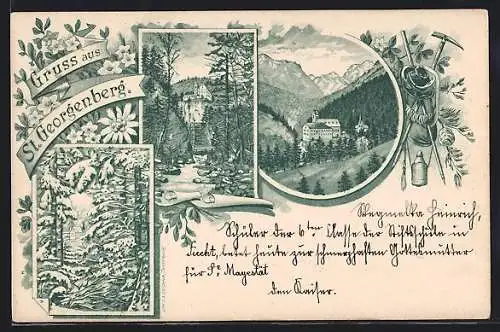 Gruss aus
St. Georgenberg.
Heinrich,
Schüler der 6ten Classe der Stiftschule in
Fiecht, betet heute zur schmerzhaften Gottesmutter
für Se Mayestät
den Kaiser.